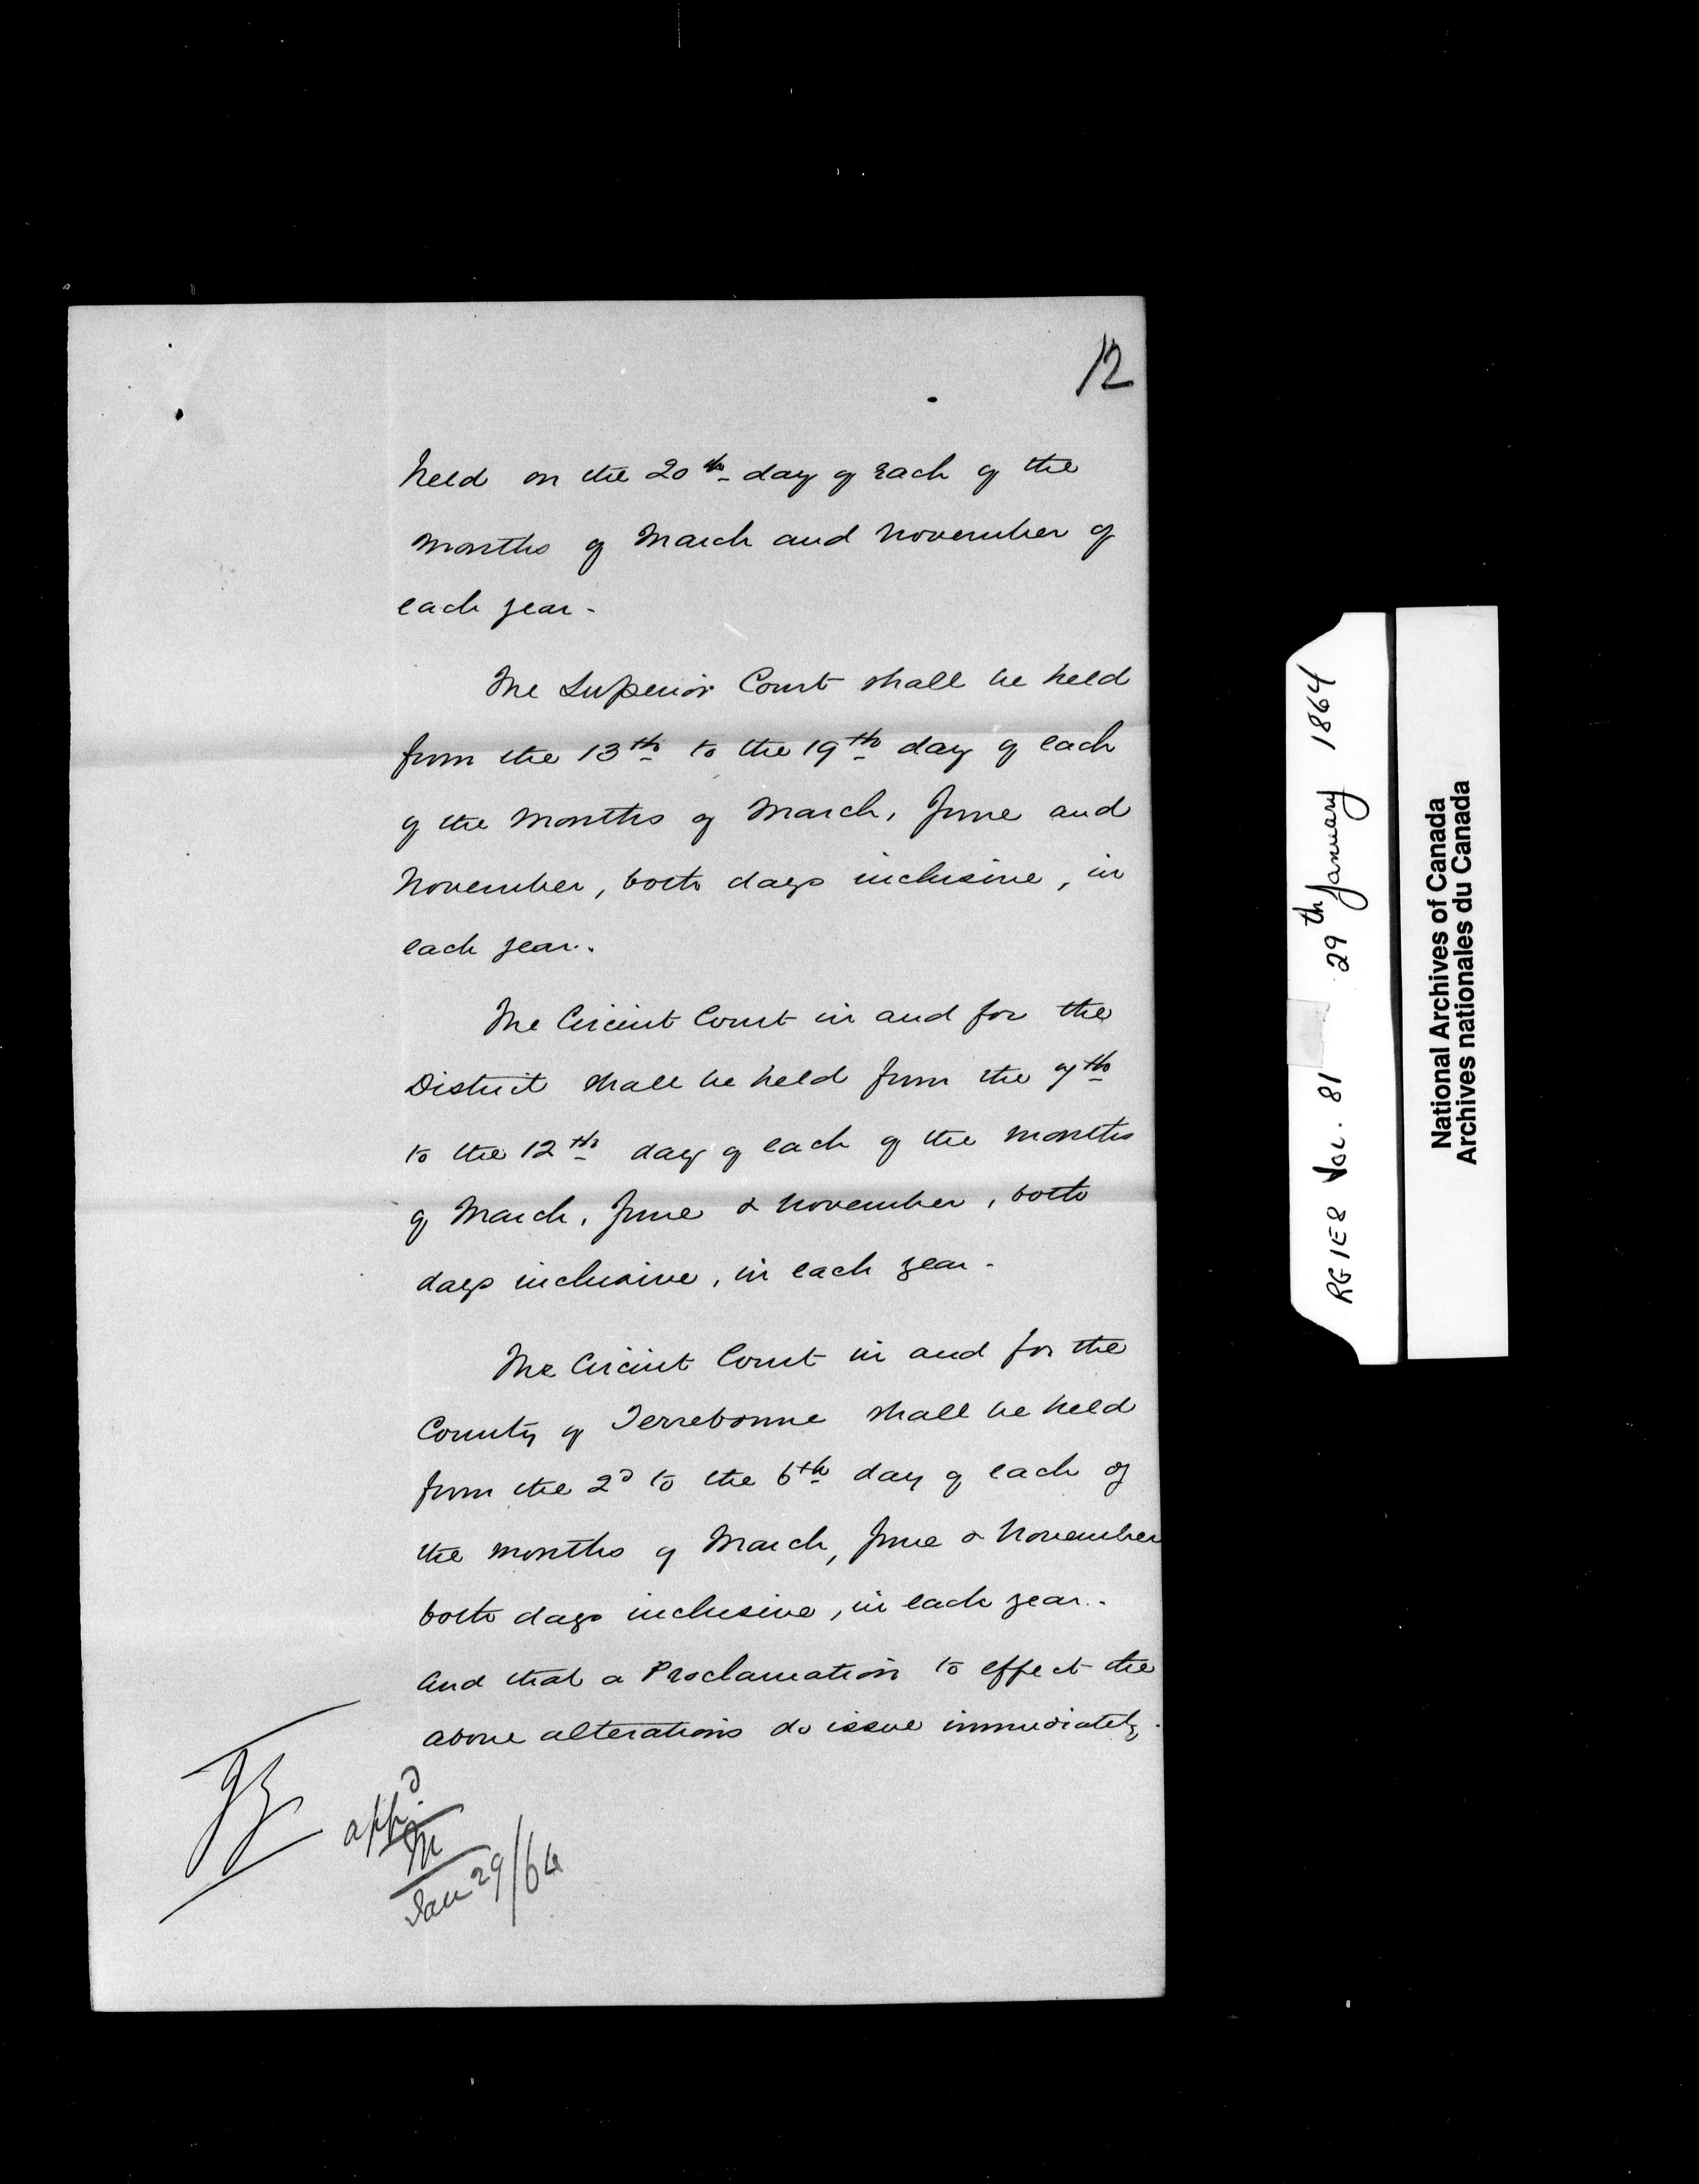 12
held on the 20th day of each of the
months of March and November of
each year.
The Superior Court shall be held
from the 13th to the 19th day of each
of the months of March, June and
November, both days inclusive, in
each year.
The Circuit Court in and for the
District shall be held from the 7th
to the 12th day of each of the months
of March, June & November, both
days inclusive, in each year.
The Circuit Court in and for the
County of Terrebonne shall be held
from the 2d to the 6th day of each of
the months of March, June & November
both days inclusive, in each year.
And that a Proclamation to effect the
above alterations do issue immediately.
appd
M
Jan 29/64
RG 1E8 Vol. 81 29th January 1864
National Archives of Canada
Archives nationales du Canada